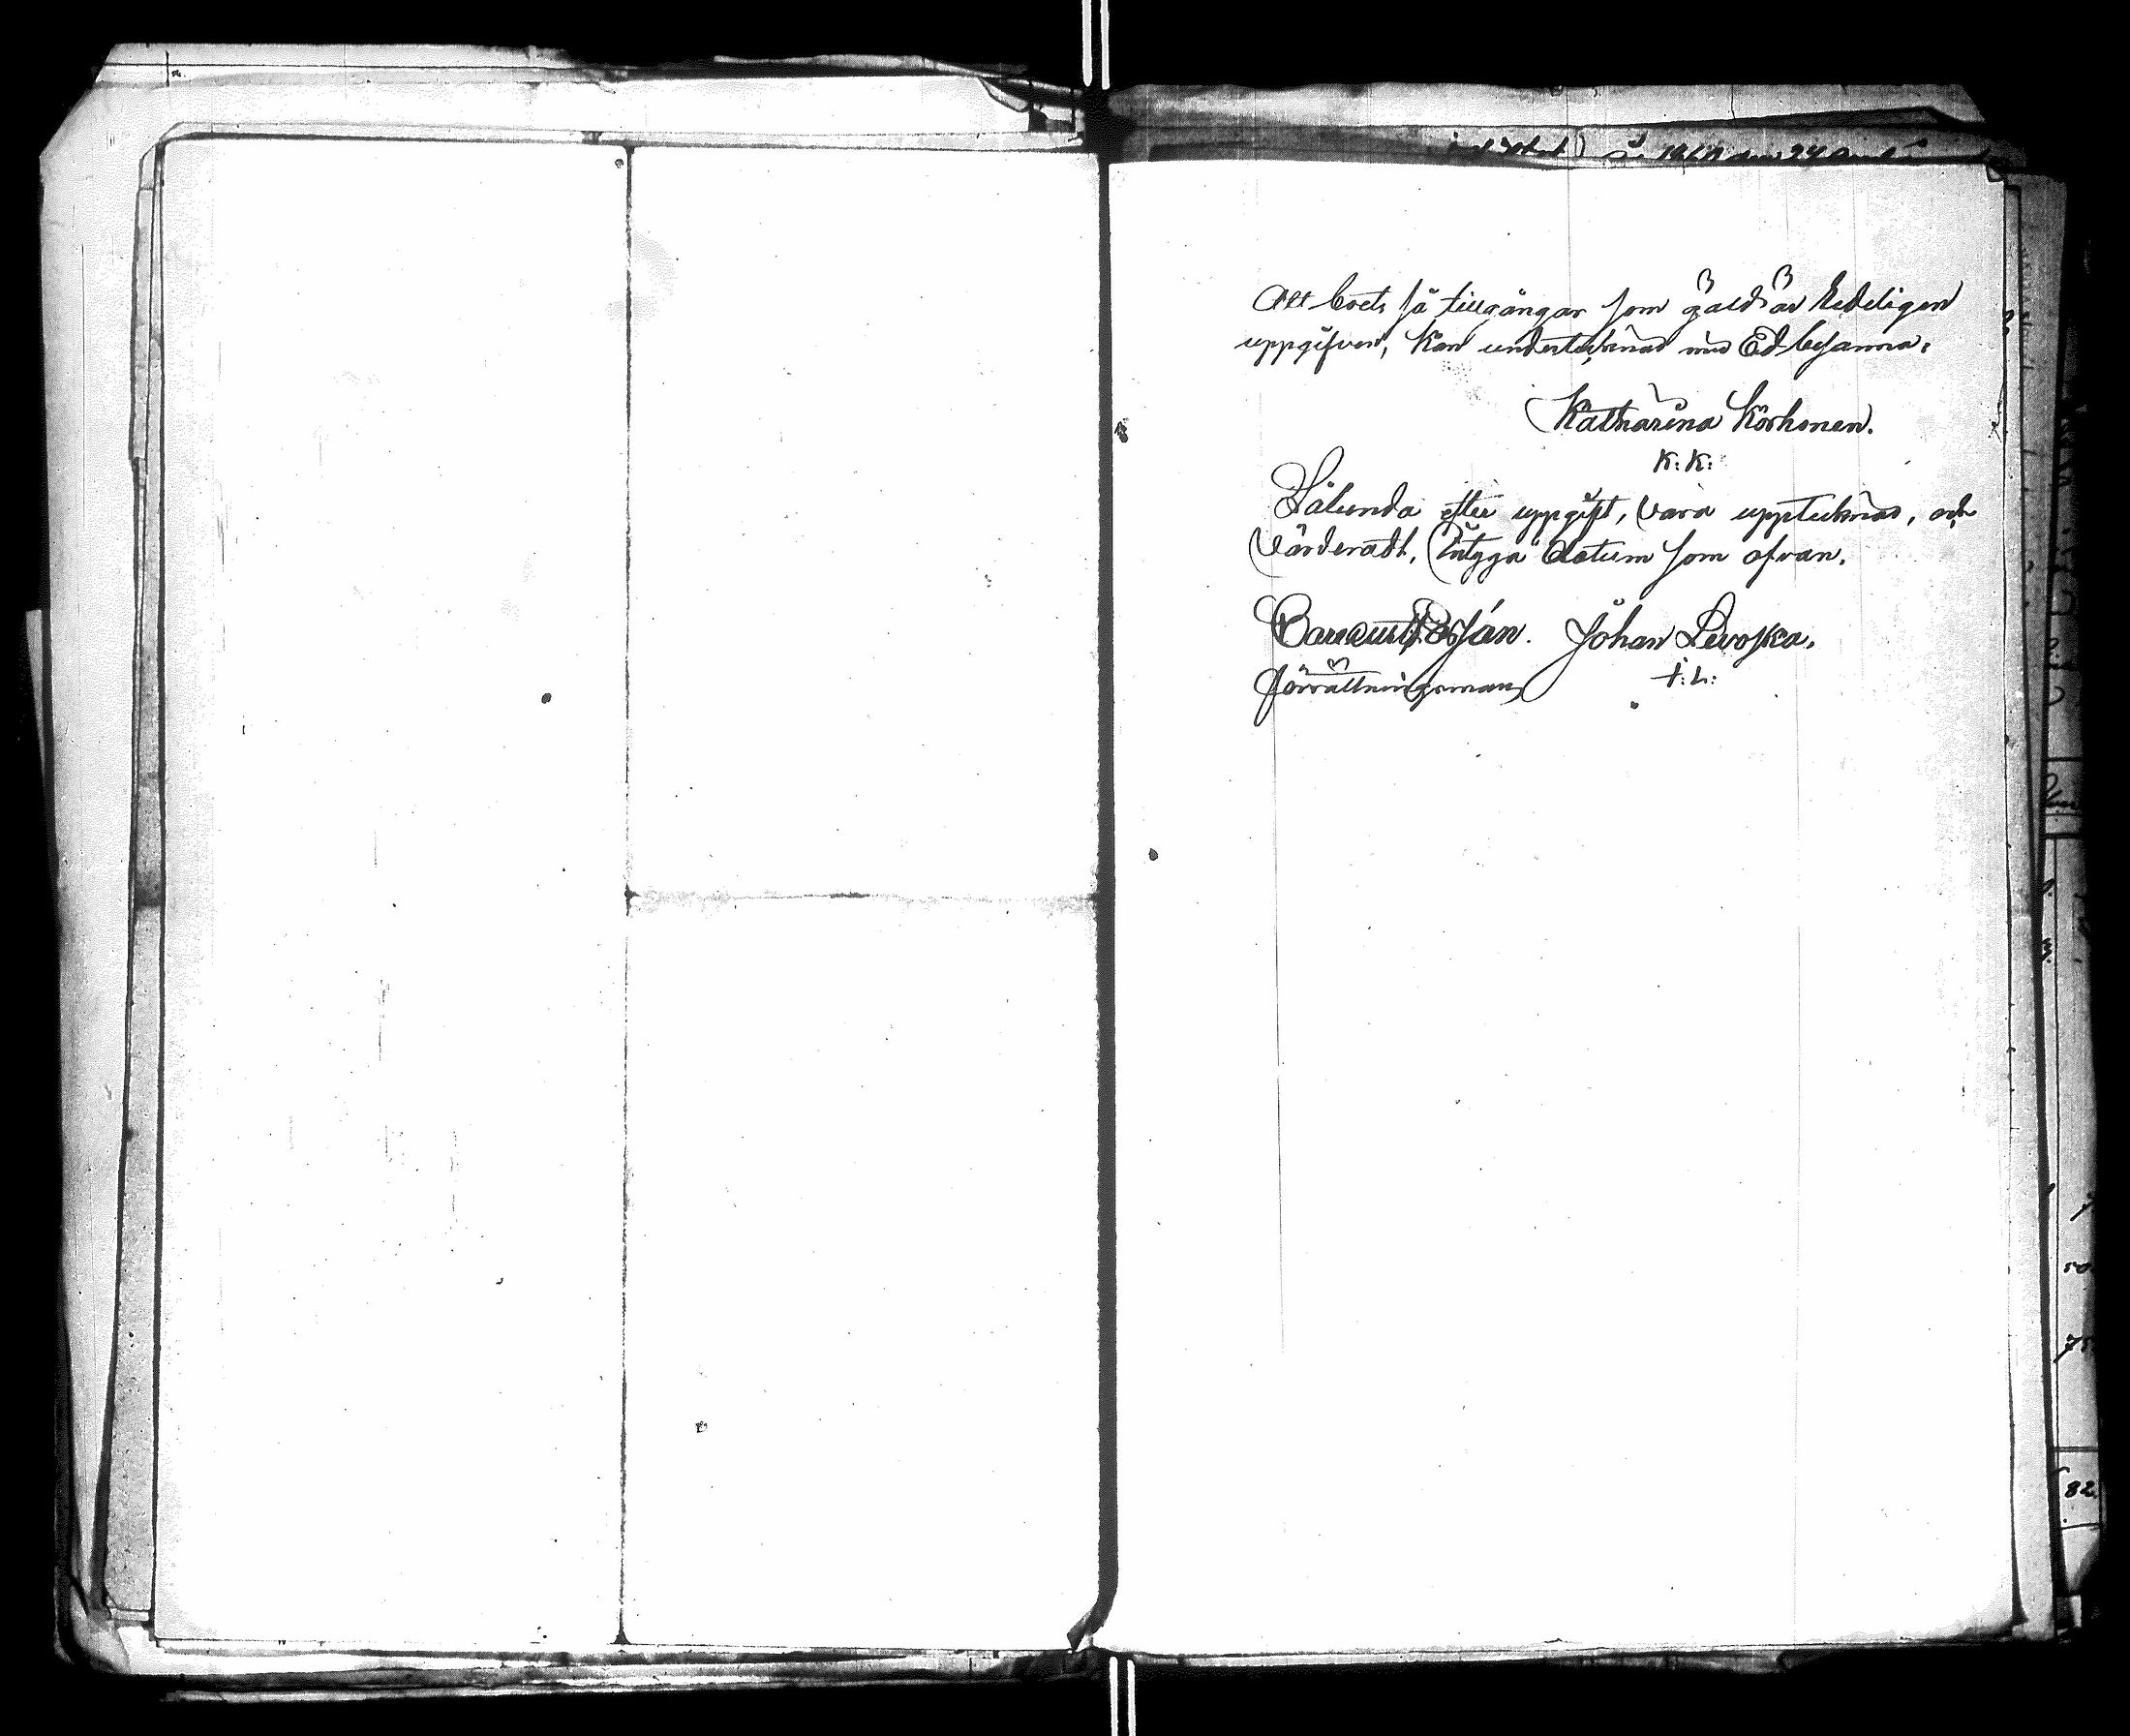 Att boets så tillgångar som gäld är Redeligen
uppgifven, kan undertecknad med Ed besanna.
Katharina Korhonen.
K: K:
Sålunda efter uppgift, vara upptecknad, och
Värderadt, Intyga Datum som ofvan.
Johan Levoska.
förrättningsman
J: L: